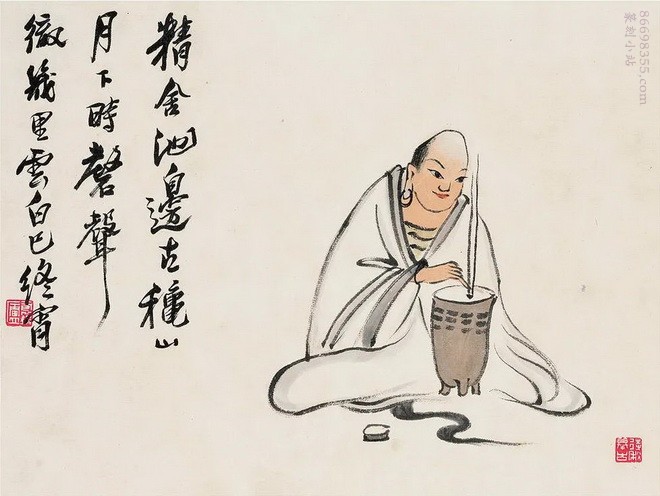 精舍池邊古穐山
月下時磬聲
徹幾里雲白已終宵
86698355.com
篆刻小站